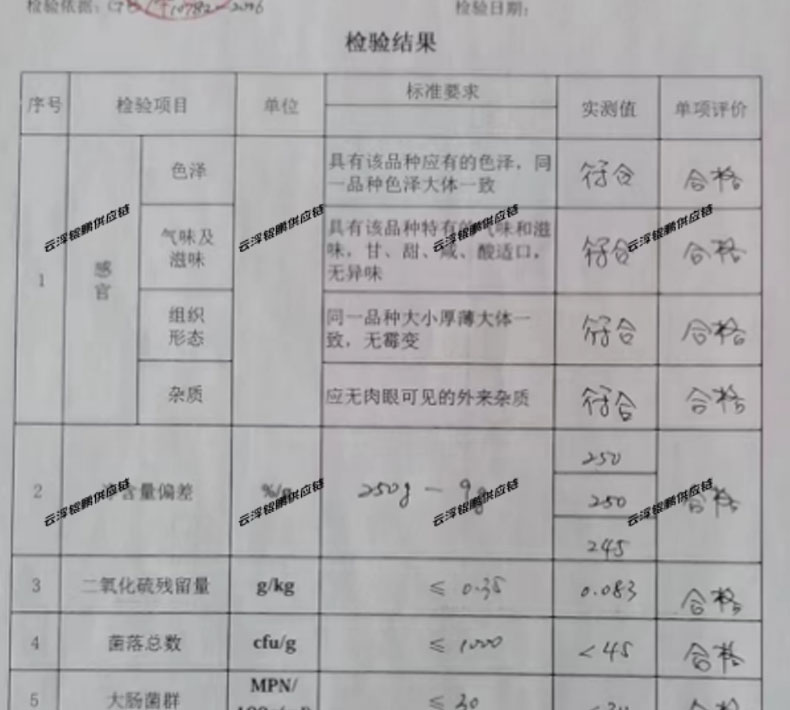 检验依据: GB/T10782-2006
检验日期:
检验结果
序号 检验项目 单位 标准要求 实测值 单项评价
1 感官
色泽 具有该品种应有的色泽，同一品种色泽大体一致 符合 合格
气味及滋味 具有该品种特有的气味和滋味，甘、甜、咸、酸适口，无异味 符合 合格
组织形态 同一品种大小厚薄大体一致，无霉变 符合 合格
杂质 应无肉眼可见的外来杂质 符合 合格
2 净含量偏差 %/g 250g - 9g 250 合格
250
245
3 二氧化硫残留量 g/kg ≤ 0.35 0.083 合格
4 菌落总数 cfu/g ≤ 1000 <45 合格
5 大肠菌群 MPN/ ≤ 30 合格
云浮锦鹏供应链
云浮锦鹏供应链
云浮锦鹏供应链
云浮锦鹏供应链
云浮锦鹏供应链
云浮锦鹏供应链
云浮锦鹏供应链
云浮锦鹏供应链